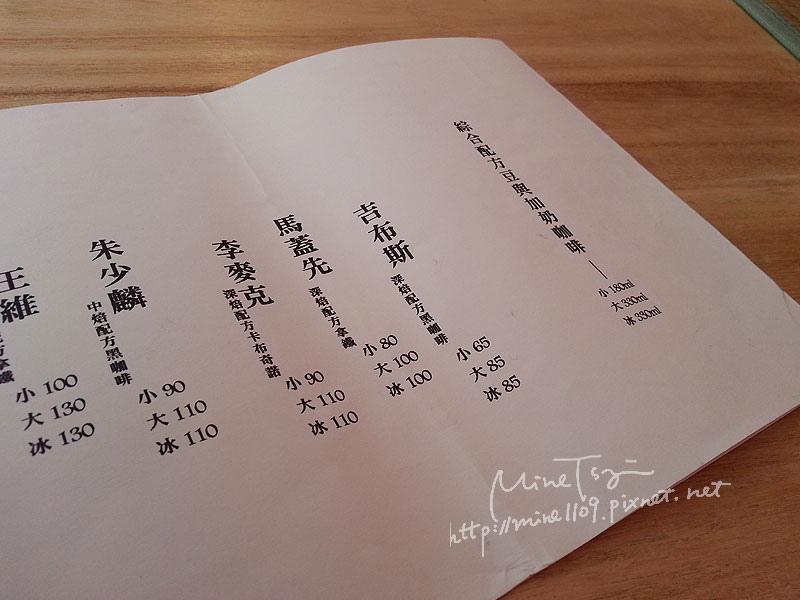 綜合配方豆與加奶咖啡—
小 180ml
大 330ml
冰 330ml
吉布斯
深焙配方黑咖啡
小 65
大 85
冰 85
馬蓋先
深焙配方拿鐵
小 80
大 100
冰 100
李麥克
深焙配方卡布奇諾
小 90
大 110
冰 110
朱少麟
中焙配方黑咖啡
小 90
大 110
冰 110
王維
方拿鐵
小 100
大 130
冰 130
http://mine1109.pixnet.net